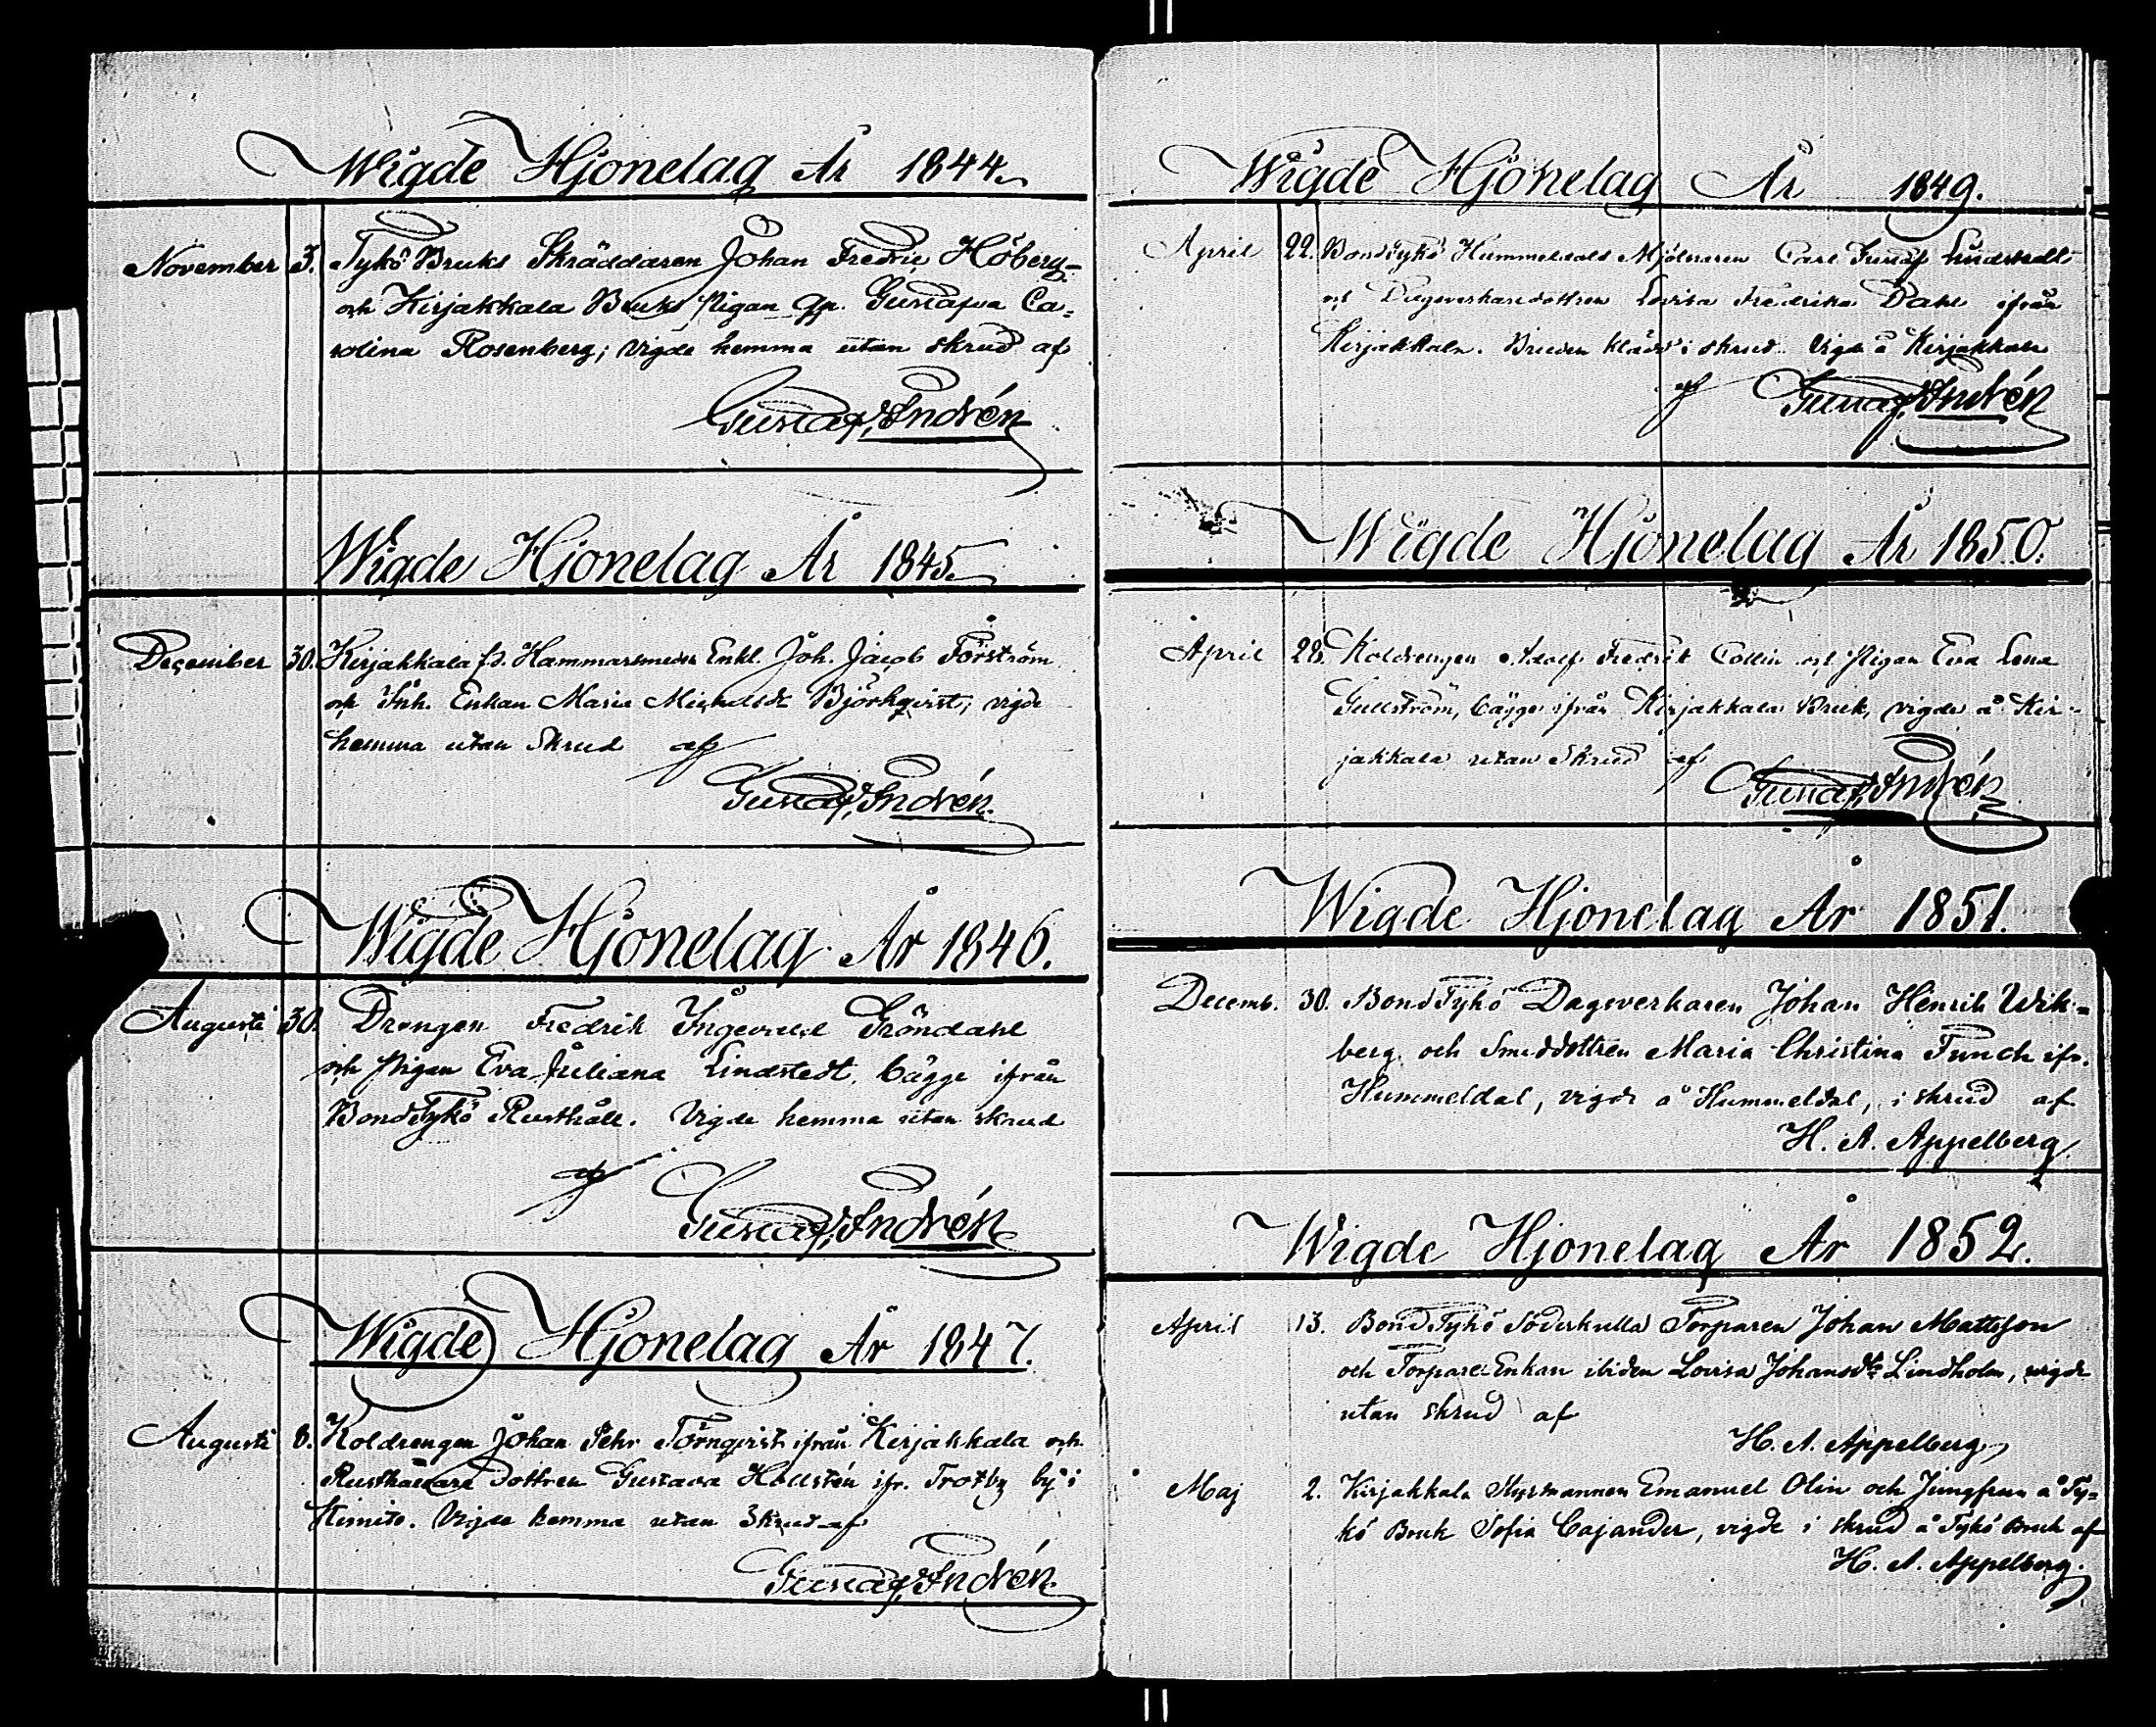 Wigde Hjonelag År 1844.
November 3. Tykö Bruks Skräddaren Johan Fredric Höberg-
och Kirjakkala Bruks Pigan Gustafva Ca-
rolina Rosenberg; vigde hemma utan skrud af
Gustaf Andrén
Wigde Hjonelag År 1845.
December 30. Kirjakkala f.d. Hammarsmeden Enkl. Joh. Jacob Förström
och Inh. Enkan Maria Michelsdr Björkqvist; vigde
hemma utan Skrud af
Gustaf Andrén.
Wigde Hjonelag År 1846.
Augusti 30. Drengen Fredrik Ingevald Gröndahl
och Pigan Eva Juliana Lindstedt, bägge ifrån
BondTykö Rusthåll. Vigde hemma utan skrud
af
Gustaf Andrén
Wigde Hjonelag År 1847.
Augusti 8. Koldrengen Johan Pehr Törnqvist ifrån Kirjakkala och
Rusthållare dottren Gustava Hollstén ifr. Trotby by i
Kimito. Vigde hemma utan Skrud af
Gustaf Andrén.
Wigde Hjonelag År 1849.
April 22. BondTykö Hummeldals Mjölnaren Carl Gustaf Lindstedt
och Dagsverkaredottren Lovisa Fredrika Dahl ifrån
Kirjakkala. Bruden klädd i skrud. Vigde å Kirjakkala
af Gustaf Andrén
Wigde Hjonelag År 1850.
April 28. Koldrengen Adolf Fredrik Collin och Pigan Eva Lena
Gullström, bägge ifrån Kirjakkala Bruk, vigde å Kir-
jakkala utan Skrud af
Gustaf Andrén
Wigde Hjonelag År 1851.
Decemb. 30. BondTykö Dagsverkaren Johan Henrik Wik-
berg och Smeddottren Maria Christina Funck ifr.
Hummeldal, vigde å Hummeldal, i skrud af
H. A. Appelberg
Wigde Hjonelag År 1852.
April 13. BondTykö Söderkulla Torparen Johan Mattsson
och Torpare Enkan ibidem Lovisa Johansdr Lindholm, vigde
utan skrud af
H. A. Appelberg
Maj 2. Kirjakkala Styrmannen Emanuel Olin och Jungfrun å Ty-
kö Bruk Sofia Cajander, vigde i skrud å Tykö Bruk af
H. A. Appelberg.